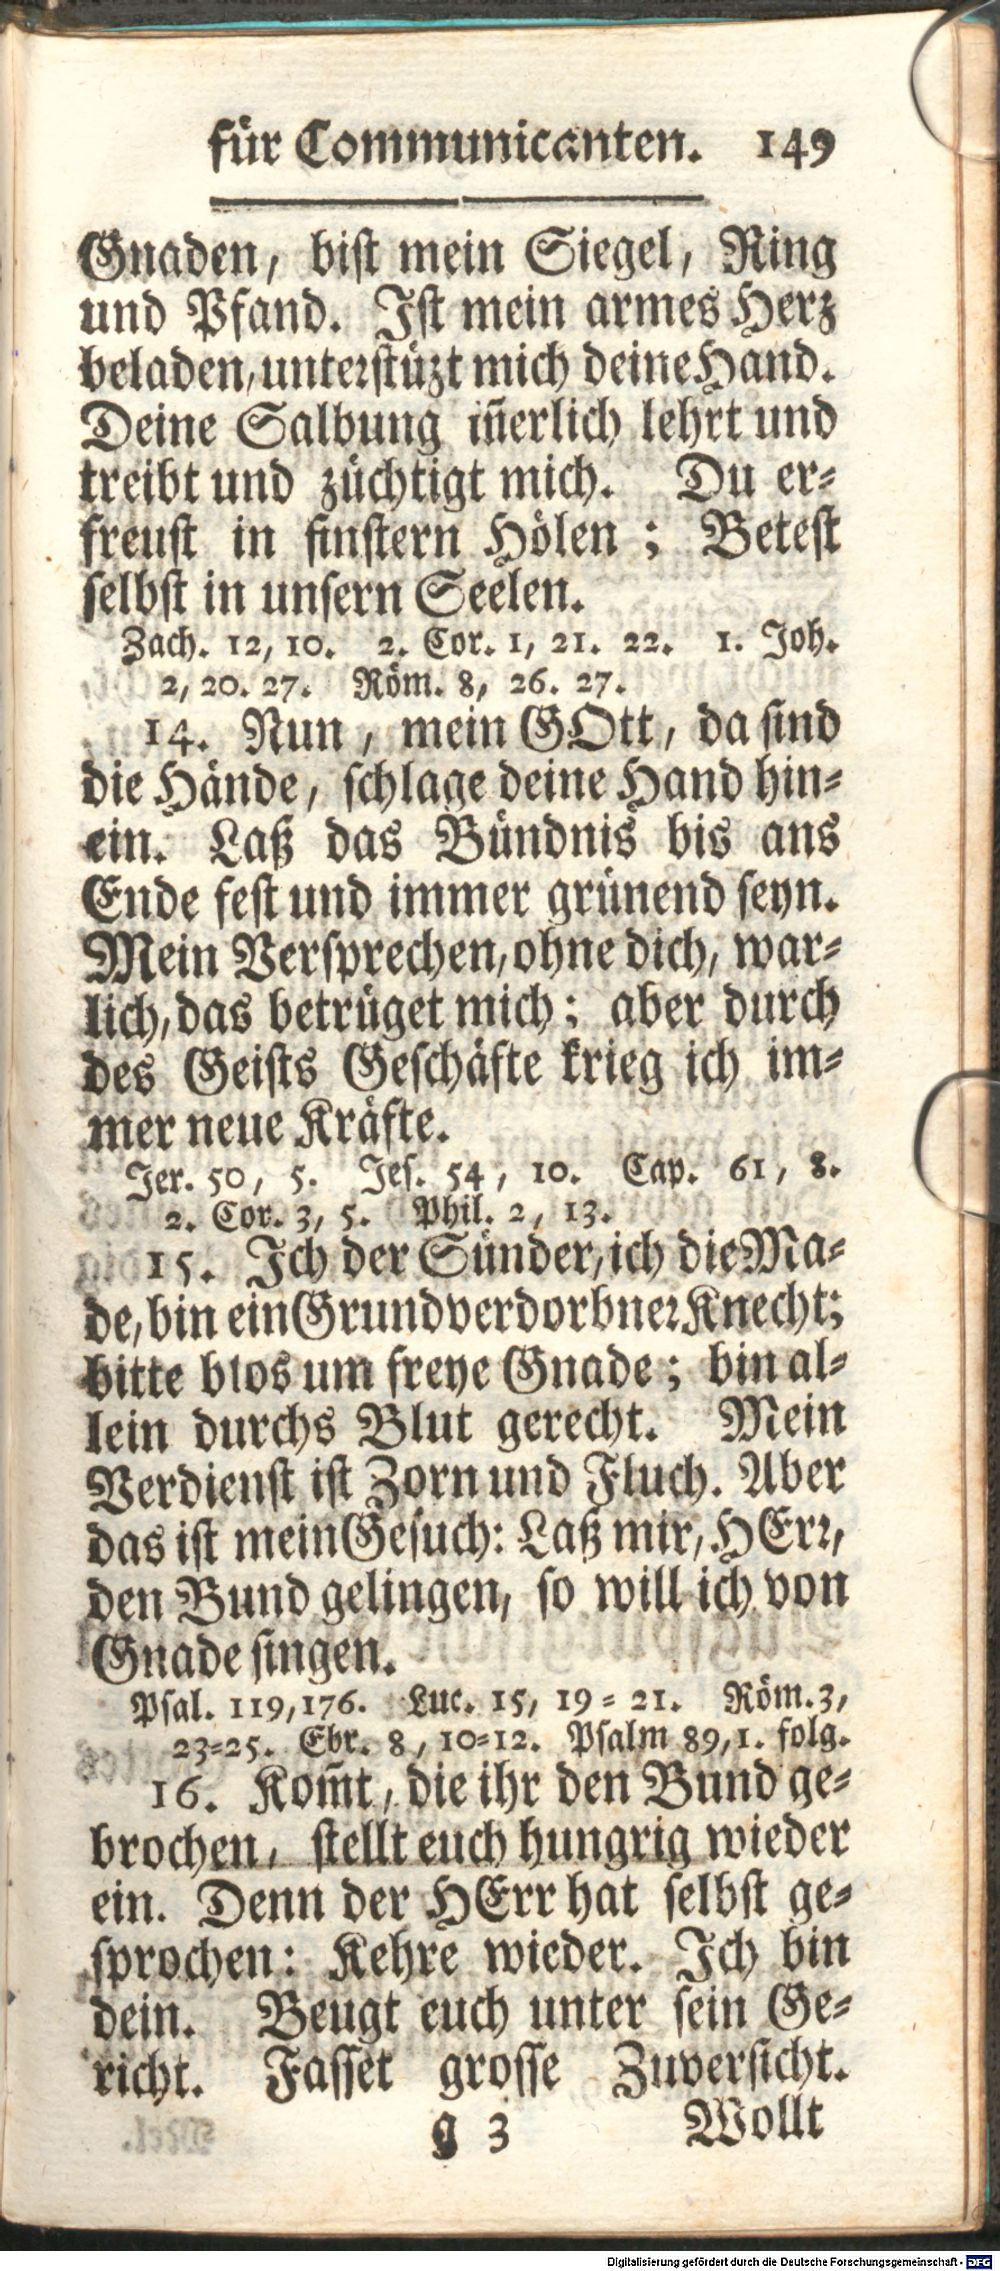 für Communicanten. 149
Gnaden, bist mein Siegel, Ring
und Pfand. Ist mein armes Herz
beladen, unterstüzt mich deine Hand.
Deine Salbung iñerlich lehrt und
treibt und züchtigt mich. Du er-
freust in finstern Hölen; Betest
selbst in unsern Seelen.
Zach. 12, 10. 2. Cor. 1, 21. 22. 1. Joh.
2, 20. 27. Röm. 8, 26. 27.
14. Nun, mein GOtt, da sind
die Hände, schlage deine Hand hin-
ein. Laß das Bündnis bis ans
Ende fest und immer grünend seyn.
Mein Versprechen, ohne dich, war-
lich, das betrüget mich; aber durch
des Geists Geschäfte krieg ich im-
mer neue Kräfte.
Jer. 50, 5. Jes. 54, 10. Cap. 61, 8.
2. Cor. 3, 5. Phil. 2, 13.
15. Ich der Sünder, ich die Ma-
de, bin ein Grundverdorbner Knecht;
bitte blos um freye Gnade; bin al-
lein durchs Blut gerecht. Mein
Verdienst ist Zorn und Fluch. Aber
das ist mein Gesuch: Laß mir, HErr,
den Bund gelingen, so will ich von
Gnade singen.
Psal. 119, 176. Luc. 15, 19-21. Röm. 3,
23-25. Ebr. 8, 10-12. Psalm 89, 1. folg.
16. Kom̃t, die ihr den Bund ge-
brochen, stellt euch hungrig wieder
ein. Denn der HErr hat selbst ge-
sprochen: Kehre wieder. Ich bin
dein. Beugt euch unter sein Ge-
richt. Fasset grosse Zuversicht.
g 3 Wollt
Digitalisierung gefördert durch die Deutsche Forschungsgemeinschaft - DFG